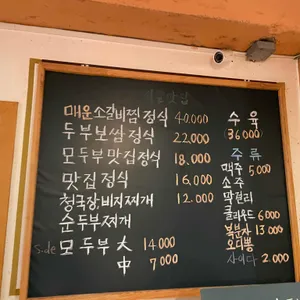 매운소갈비찜정식 40.000
두부보쌈정식 22,000
모두부맛집정식 18.000
맛집정식 16,000
청국장비지찌개 12.000
순두부찌개
Side 모두부 大 14000
中 7000
수육
(36000)
주류
맥주 5000
소주
막걸리
클라우드 6000
복분자 13000
오디뽕
사이다 2.000